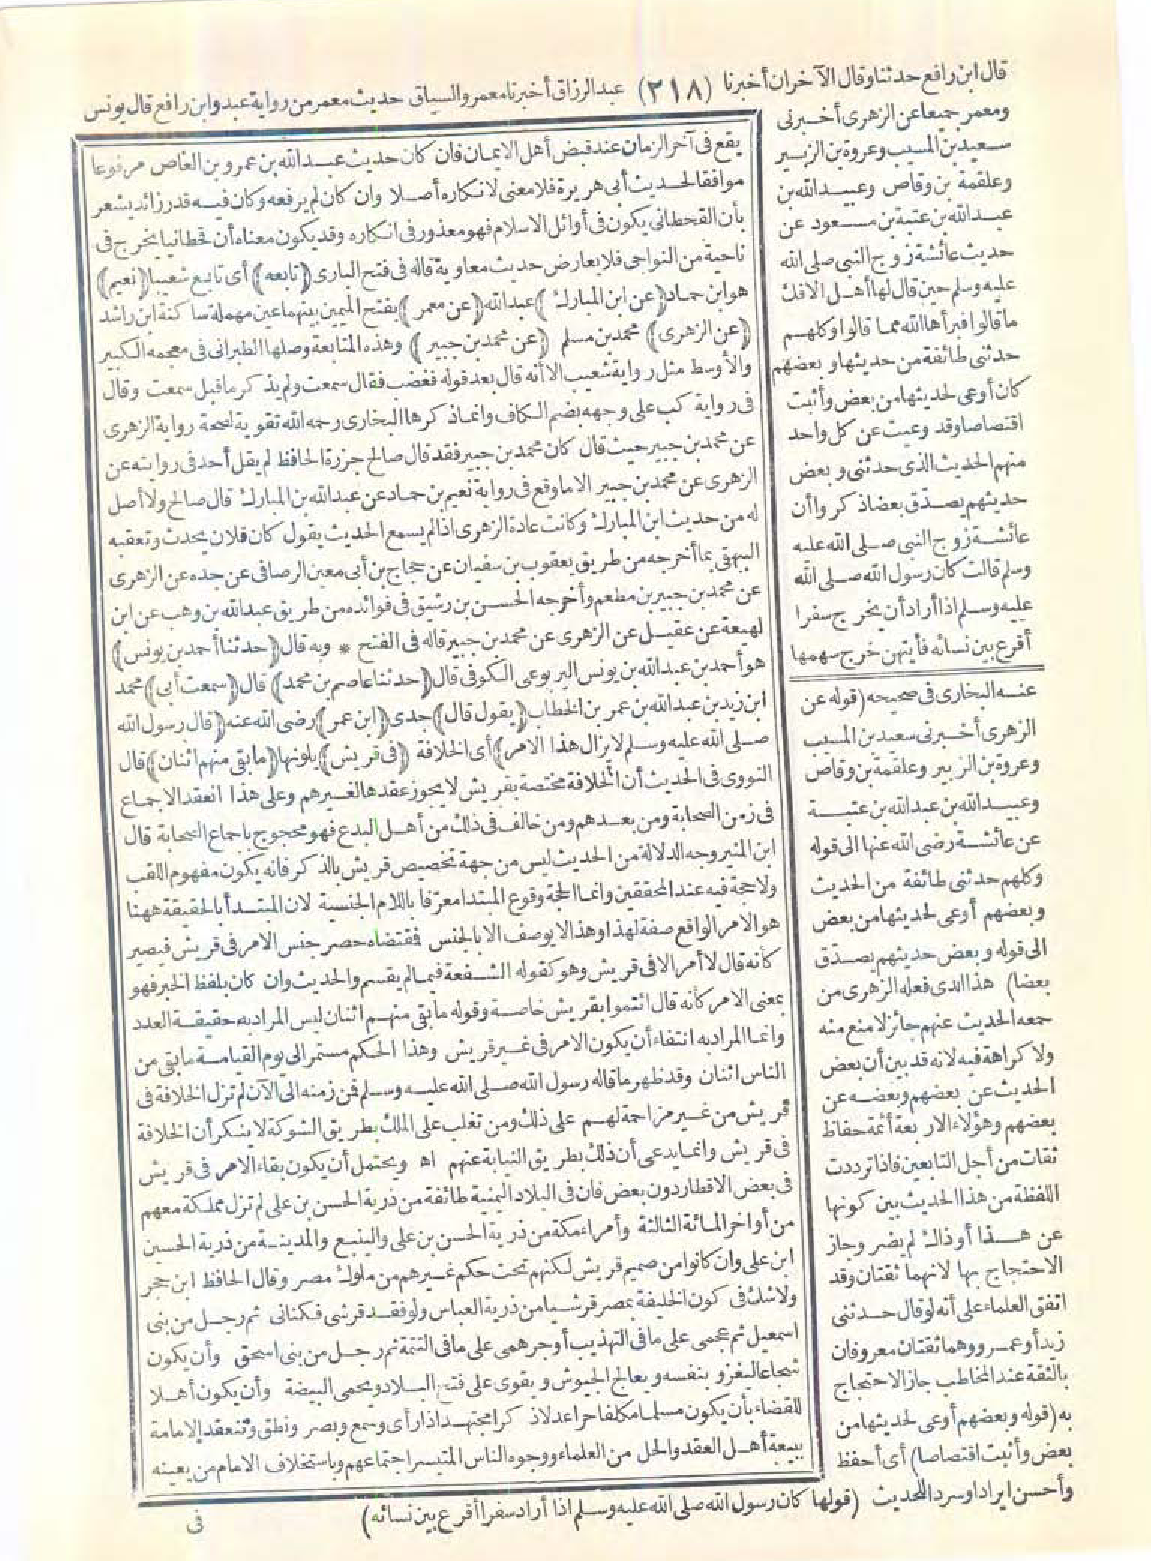 قال ابن رافع حدثنا وقال الآخران أخبرنا (٢١٨) عبد الرزاق أخبرنا معمر والسياق حديث معمر من رواية عبد وابن رافع قال يونس
ومعمر جميعا عن الزهرى أخبرنى
سعيد بن المسيب وعروة بن الزبير
وعلقمة بن وقاص وعبيد الله بن
عبد الله بن عتبة بن مسعود عن
حديث عائشة زوج النبى صلى الله
عليه وسلم حين قال لها أهل الافك
ما قالوا فبرأها الله مما قالوا وكلهم
حدثنى طائفة من حديثها وبعضهم
كان أوعى لحديثها من بعض وأثبت
اقتصاصا وقد وعيت عن كل واحد
منهم الحديث الذى حدثنى وبعض
حديثهم يصدّق بعضا ذكروا أن
عائشة زوج النبى صلى الله عليه
وسلم قالت كان رسول الله صلى الله
عليه وسلم اذا أراد أن يخرج سفرا
أقرع بين نسائه فأيتهن خرج سهمها
عنه البخارى فى صحيحه (قوله عن
الزهرى أخبرنى سعيد بن المسيب
وعروة بن الزبير وعلقمة بن وقاص
وعبيد الله بن عبد الله بن عتبة
عن عائشة رضى الله عنها الى قوله
وكلهم حدثنى طائفة من الحديث
وبعضهم أوعى لحديثها من بعض
الى قوله وبعض حديثهم يصدّق
بعضا) هذا الذى فعله الزهرى من
جمعه الحديث عنهم جائز لا منع منه
ولا كراهة فيه لانه قد بين أن بعض
الحديث عن بعضهم وبعضه عن
بعضهم وهؤلاء الاربعة أئمة حفاظ
ثقات من أجل التابعين فاذا ترددت
اللفظة من هذا الحديث بين كونها
عن هذا أو ذاك لم يضر وجاز
الاحتجاج بها لانهما ثقتان وقد
اتفق العلماء على أنه لو قال حدثنى
زيد أو عمرو وهما ثقتان معروفان
بالثقة عند المخاطب جاز الاحتجاج
به (قوله وبعضهم أوعى لحديثها من
بعض وأثبت اقتصاصا) أى أحفظ
وأحسن ايرادا وسردا للحديث (قولها كان رسول الله صلى الله عليه وسلم اذا أراد سفرا أقرع بين نسائه)
يقع فى آخر الزمان عند قبض أهل الايمان فان كان حديث عبد الله بن عمرو بن العاص مرفوعا
موافقا لحديث أبى هريرة فلا معنى لانكاره أصلا وان كان لم يرفعه وكان فيه قدر زائد يشعر
بأن القحطانى يكون فى أوائل الاسلام فهو معذور فى انكاره وقد يكون معناه أن قحطانيا يخرج فى
ناحية من النواحى فلا يعارض حديث معاوية قاله فى فتح البارى (تابعه) أى تابع شعيبا (نعيم)
هو ابن حماد (عن ابن المبارك) عبد الله (عن معمر) بفتح الميمين بينهما عين مهملة ساكنة ابن راشد
(عن الزهرى) محمد بن مسلم (عن محمد بن جبير) وهذه المتابعة وصلها الطبرانى فى معجمه الكبير
والأوسط مثل رواية شعيب الا أنه قال بعد قوله فغضب فقال سمعت ولم يذكر ما قبل سمعت وقال
فى رواية كب على وجهه بضم الكاف وانما ذكرها البخارى رحمه الله تقوية لصحة رواية الزهرى
عن محمد بن جبير حيث قال كان محمد بن جبير فقد قال صالح جزرة الحافظ لم يقل أحد فى روايته عن
الزهرى عن محمد بن جبير الا ما وقع فى رواية نعيم بن حماد عن عبد الله بن المبارك قال صالح ولا أصل
له من حديث ابن المبارك وكانت عادة الزهرى اذا لم يسمع الحديث يقول كان فلان يحدث وتعقبه
البيهقى بما أخرجه من طريق يعقوب بن سفيان عن حجاج بن أبى معين الرصافى عن جده عن الزهرى
عن محمد بن جبير بن مطعم وأخرجه الحسن بن رشيق فى فوائده من طريق عبد الله بن وهب عن ابن
لهيعة عن عقيل عن الزهرى عن محمد بن جبير قاله فى الفتح * وبه قال (حدثنا أحمد بن يونس)
هو أحمد بن عبد الله بن يونس اليربوعى الكوفى قال (حدثنا عاصم بن محمد) قال (سمعت أبى) محمد
ابن زيد بن عبد الله بن عمر بن الخطاب (يقول قال) جدى (ابن عمر) رضى الله عنه (قال رسول الله
صلى الله عليه وسلم لا يزال هذا الامر) أى الخلافة (فى قريش) يلونها (ما بقى منهم اثنان) قال
النووى فى الحديث أن الخلافة مختصة بقريش لا يجوز عقدها لغيرهم وعلى هذا انعقد الاجماع
فى زمن الصحابة ومن بعدهم ومن خالف فى ذلك من أهل البدع فهو محجوج باجماع الصحابة قال
ابن المنير وجه الدلالة من الحديث ليس من جهة تخصيص قريش بالذكر فانه يكون مفهوم اللقب
ولا حجة فيه عند المحققين وانما الحجة وقوع المبتدا معرّفا باللام الجنسية لان المبتدأ بالحقيقة ههنا
هو الامر الواقع صفة لهذا وهذا لا يوصف الا بالجنس فمقتضاه حصر جنس الامر فى قريش فيصير
كأنه قال لا أمر الا فى قريش وهو كقوله الشفعة فيما لم يقسم والحديث وان كان بلفظ الخبر فهو
بمعنى الامر كأنه قال ائتموا بقريش خاصة وقوله ما بقى منهم اثنان ليس المراد به حقيقة العدد
وانما المراد به انتفاء أن يكون الامر فى غير قريش وهذا الحكم مستمر الى يوم القيامة ما بقى من
الناس اثنان وقد ظهر ما قاله رسول الله صلى الله عليه وسلم فمن زمنه الى الآن لم تزل الخلافة فى
قريش من غير مزاحمة لهم على ذلك ومن تغلب على الملك بطريق الشوكة لا ينكر أن الخلافة
فى قريش وانما يدعى أن ذلك بطريق النيابة عنهم اه ويحتمل أن يكون بقاء الامر فى قريش
فى بعض الاقطار دون بعض فان فى البلاد اليمنية طائفة من ذرية الحسن بن على لم تزل مملكة معهم
من أواخر المائة الثالثة وأمراء مكة من ذرية الحسن بن على والينبع والمدينة من ذرية الحسين
ابن على وان كانوا من صميم قريش لكنهم تحت حكم غيرهم من ملوك مصر وقال الحافظ ابن حجر
ولا شك فى كون الخليفة بمصر قرشيا من ذرية العباس ولو فقد قرشى فكنانى ثم رجل من بنى
اسمعيل ثم عجمى على ما فى التهذيب أو جرهمى على ما فى التتمة ثم رجل من بنى اسحق وأن يكون
شجاعا ليغزو بنفسه ويعالج الجيوش ويقوى على فتح البلاد ويحمى البيضة وأن يكون أهلا
للقضاء بأن يكون مسلما مكلفا حرا عدلا ذكرا مجتهدا ذا رأى وسمع وبصر ونطق وتنعقد الامامة
ببيعة أهل العقد والحل من العلماء ووجوه الناس المتيسر اجتماعهم وباستخلاف الامام من يعينه
فى